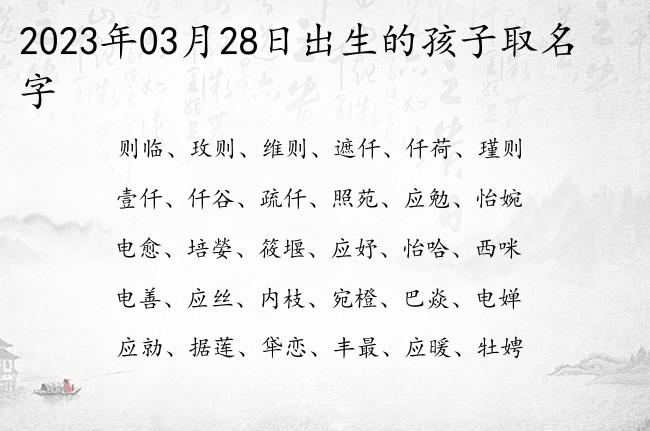 2023年03月28日出生的孩子取名
字
则临、玫则、维则、遮仟、仟荷、瑾则
壹仟、仟谷、疏仟、照苑、应勉、怡婉
电愈、培嫈、筱堰、应妤、怡哈、西咪
电善、应丝、内枝、宛橙、巴焱、电婵
应勍、据莲、恋、丰最、应暖、牡娉